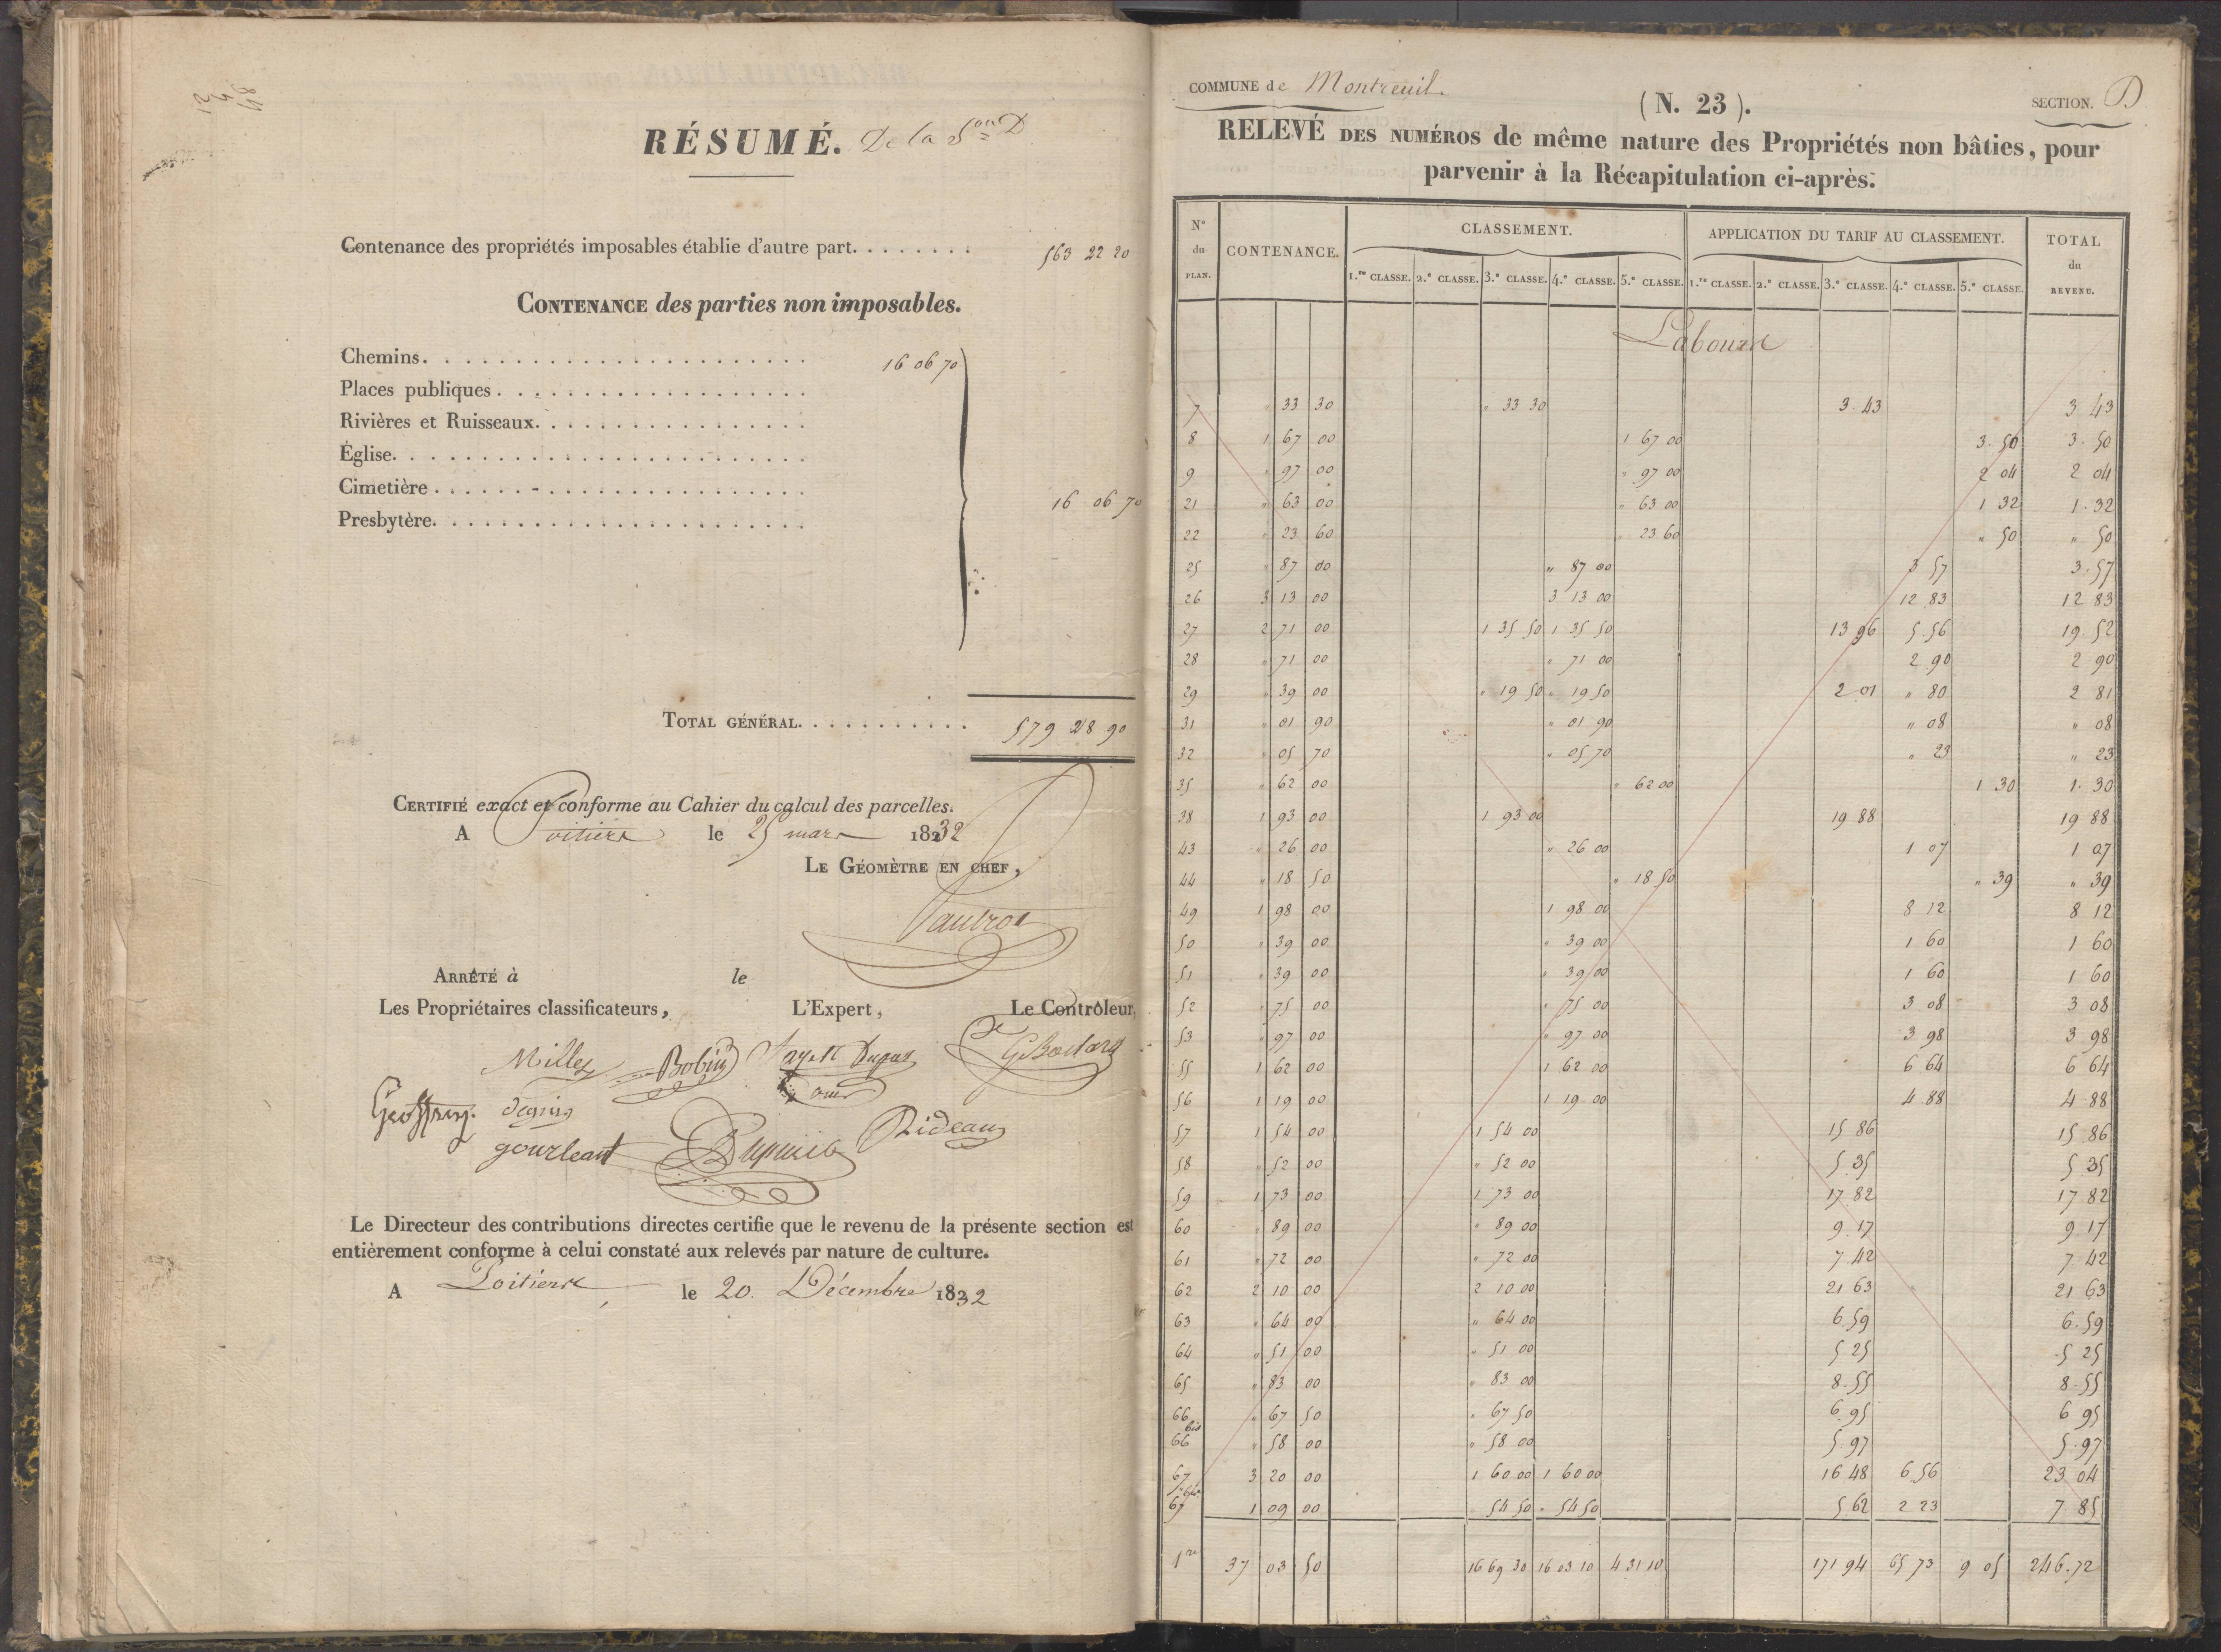 RÉSUMÉ. De la S.on D
Contenance des propriétés imposables établie d'autre part. . . . . . . . 563 22 20
CONTENANCE des parties non imposables.
Chemins. . . . . . . . 16 06 70
Places publiques . . . . . . . .
Rivières et Ruisseaux. . . . . . . .
Église. . . . . . . .
Cimetière . . . . . . . . 16 06 70
Presbytère. . . . . . . .
TOTAL GÉNÉRAL. . . . . . . . 579 28 90
CERTIFIÉ exact et conforme au Cahier du calcul des parcelles.
A Poitiers le 25 mars 1832
LE GÉOMÈTRE EN CHEF,
ARRÊTÉ à le
Les Propriétaires classificateurs, L'Expert, Le Contrôleur,
Millet Bobin
Geoffroy
gourleau Dupuis Rideau
Le Directeur des contributions directes certifie que le revenu de la présente section est
entièrement conforme à celui constaté aux relevés par nature de culture.
A Poitiers le 20 Décembre 1832
COMMUNE de Montreuil. (N. 23). SECTION. D
RELEVÉ DES NUMÉROS de même nature des Propriétés non bâties, pour
parvenir à la Récapitulation ci-après.
N° du PLAN. CONTENANCE. CLASSEMENT. APPLICATION DU TARIF AU CLASSEMENT. TOTAL du REVENU.
1.re CLASSE. 2.e CLASSE. 3.e CLASSE. 4.e CLASSE. 5.e CLASSE. 1.re CLASSE. 2.e CLASSE. 3.e CLASSE. 4.e CLASSE. 5.e CLASSE.
Labours
7 " 33 30 " 33 30 3 43 3 43
8 1 67 00 1 67 00 3 50 3 50
9 " 97 00 " 97 00 2 04 2 04
21 " 63 00 " 63 00 1 32 1 32
22 " 23 60 " 23 60 " 50 " 50
25 " 87 00 " 87 00 3 57 3 57
26 3 13 00 3 13 00 12 83 12 83
27 2 71 00 1 35 50 1 35 50 13 96 5 56 19 52
28 " 71 00 " 71 00 2 90 2 90
29 " 39 00 " 19 50 " 19 50 2 01 " 80 2 81
31 " 01 90 " 01 90 " 08 " 08
32 " 05 70 " 05 70 " 23 " 23
35 " 62 00 " 62 00 1 30 1 30
38 1 93 00 1 93 00 19 88 19 88
43 " 26 00 " 26 00 1 07 1 07
44 " 18 50 " 18 50 " 39 " 39
49 1 98 00 1 98 00 8 12 8 12
50 " 39 00 " 39 00 1 60 1 60
51 " 39 00 " 39 00 1 60 1 60
52 " 75 00 " 75 00 3 08 3 08
53 " 97 00 " 97 00 3 98 3 98
55 1 62 00 1 62 00 6 64 6 64
56 1 19 00 1 19 00 4 88 4 88
57 1 54 00 1 54 00 15 86 15 86
58 " 52 00 " 52 00 5 35 5 35
59 1 73 00 1 73 00 17 82 17 82
60 " 89 00 " 89 00 9 17 9 17
61 " 72 00 " 72 00 7 42 7 42
62 2 10 00 2 10 00 21 63 21 63
63 " 64 00 " 64 00 6 59 6 59
64 " 51 00 " 51 00 5 25 5 25
65 " 83 00 " 83 00 8 55 8 55
66 " 67 50 " 67 50 6 95 6 95
66 bis " 58 00 " 58 00 5 97 5 97
67 3 20 00 1 60 00 1 60 00 16 48 6 56 23 04
67 bis 1 09 00 " 54 50 " 54 50 5 62 2 23 7 85
1re 37 03 50 16 69 30 16 03 10 4 31 10 171 94 65 73 9 05 246.72